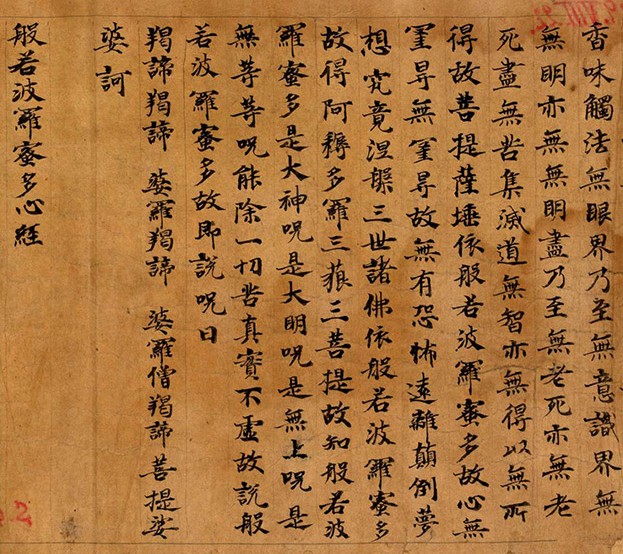 香味觸法無眼界乃至無意識界無
無明亦無無明盡乃至無老死亦無老
死盡無苦集滅道無智亦無得以無所
得故菩提薩埵依般若波羅蜜多故心無
罣㝵無罣㝵故無有恐怖遠離顛倒夢
想究竟涅槃三世諸佛依般若波羅蜜多
故得阿耨多羅三藐三菩提故知般若波
羅蜜多是大神呪是大明呪是無上呪是
無等等呪能除一切苦真實不虛故說般
若波羅蜜多故即說呪曰
羯諦羯諦 婆羅羯諦 婆羅僧羯諦菩提娑
婆訶
般若波羅蜜多心經
2